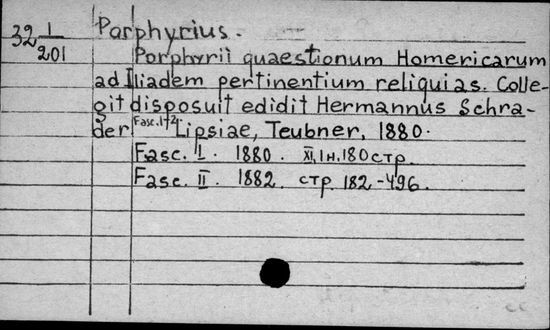 32 1/201
Porphyrius.
Porphyrii quaestionum Homericarum
ad Iliadem pertinentium reliquias. Colle-
git disposuit edidit Hermannus Schra-
der Fasc. 1-2. Lipsiae, Teubner, 1880.
Fasc. I. 1880. XI, 1н, 180 стр.
Fasc. II. 1882. стр. 182-496.